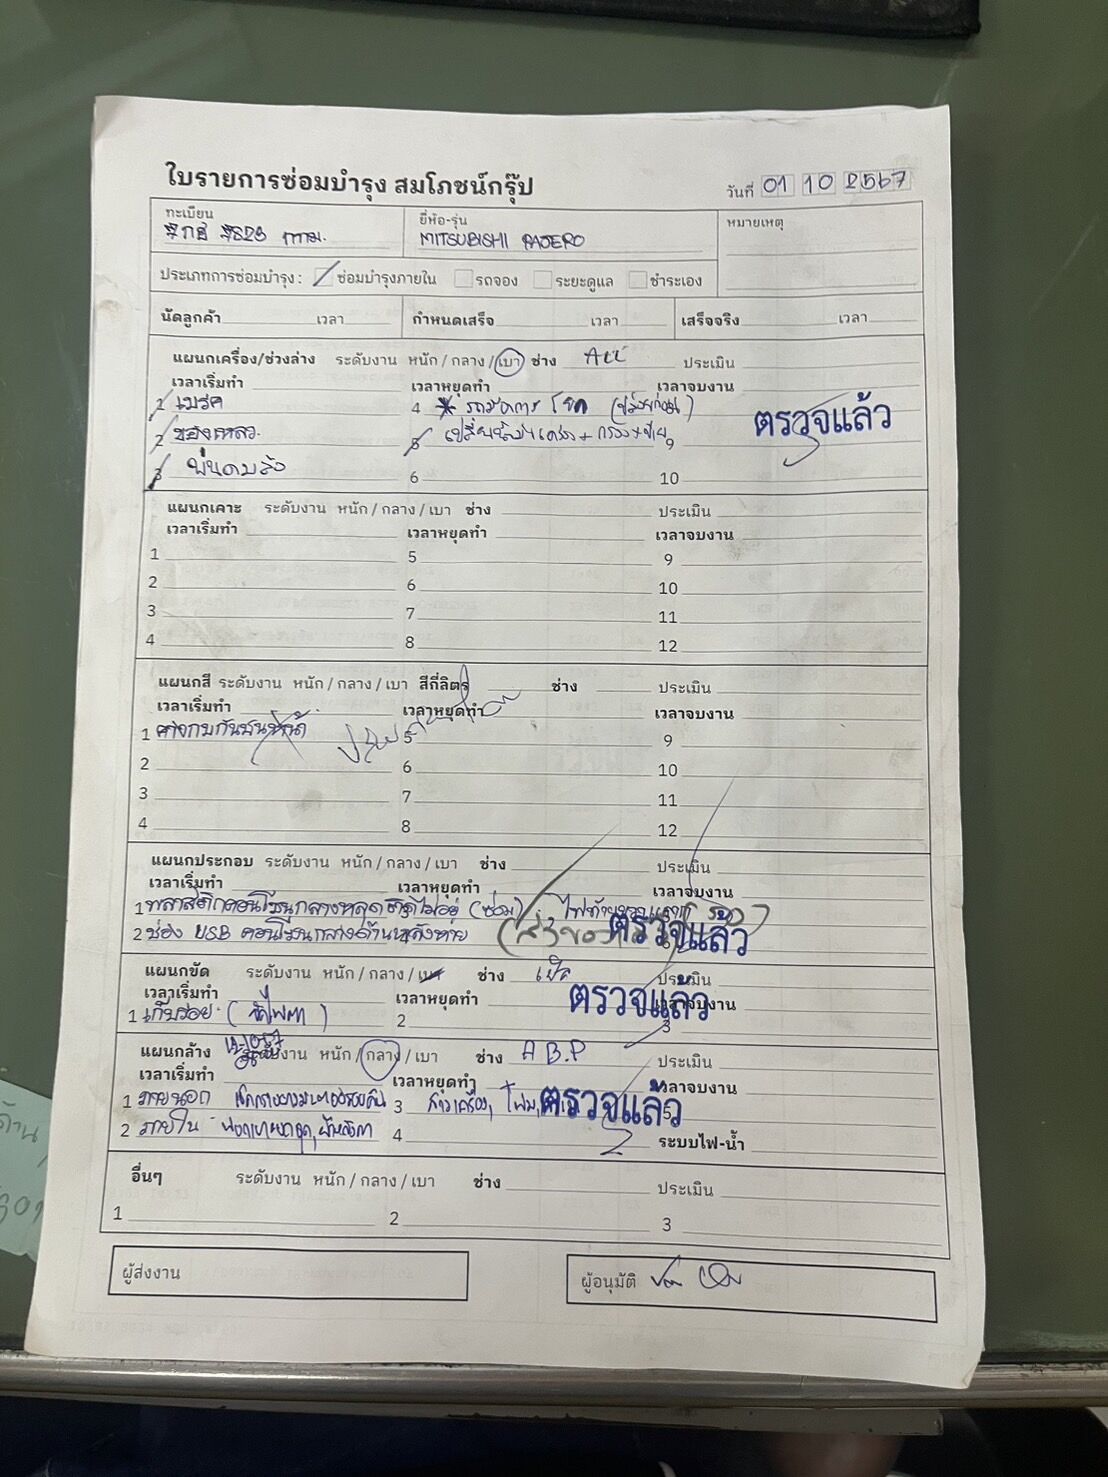 ใบรายการซ่อมบำรุง สมโภชน์กรุ๊ป
วันที่ 01 10 2567
ทะเบียน
ยี่ห้อ-รุ่น
หมายเหตุ
7828 กทม.
MITSUBISHI PAJERO
ประเภทการซ่อมบำรุง : ซ่อมบำรุงภายใน รถจอง ระยะดูแล ชำระเอง
นัดลูกค้า เวลา กำหนดเสร็จ เวลา เสร็จจริง เวลา
แผนกเครื่อง/ช่วงล่าง ระดับงาน หนัก / กลาง / เบา ช่าง ประเมิน
เวลาเริ่มทำ เวลาหยุดทำ เวลาจบงาน
1 เบรค 4
ตรวจแล้ว
2 ของเหลว 5 9
3 พ่นดบัง 6 10
แผนกเคาะ ระดับงาน หนัก / กลาง / เบา ช่าง ประเมิน
เวลาเริ่มทำ เวลาหยุดทำ เวลาจบงาน
1 5 9
2 6 10
3 7 11
4 8 12
แผนกสี ระดับงาน หนัก / กลาง / เบา สีกี่ลิตร ช่าง ประเมิน
เวลาเริ่มทำ เวลาหยุดทำ เวลาจบงาน
1 5 9
2 6 10
3 7 11
4 8 12
แผนกประกอบ ระดับงาน หนัก / กลาง / เบา ช่าง ประเมิน
เวลาเริ่มทำ เวลาหยุดทำ เวลาจบงาน
1 พลาสติกคอนโซนกลางหลุด (ซ่อม)
2 ช่อง USB คอนโซนกลางด้านหลังหาย ตรวจแล้ว
แผนกขัด ระดับงาน หนัก / กลาง / เบา ช่าง ประเมิน
เวลาเริ่มทำ เวลาหยุดทำ เวลาจบงาน
ตรวจแล้ว
1 เก็บรอย (ขัดไฟตา) 2 3
แผนกล้าง ระดับงาน หนัก / กลาง / เบา ช่าง A B.P ประเมิน
เวลาเริ่มทำ เวลาหยุดทำ เวลาจบงาน
1 ภายนอก 3 ตรวจแล้ว 5
2 ภายใน 4 ระบบไฟ-น้ำ
อื่นๆ ระดับงาน หนัก / กลาง / เบา ช่าง ประเมิน
1 2 3
ผู้ส่งงาน
ผู้อนุมัติ